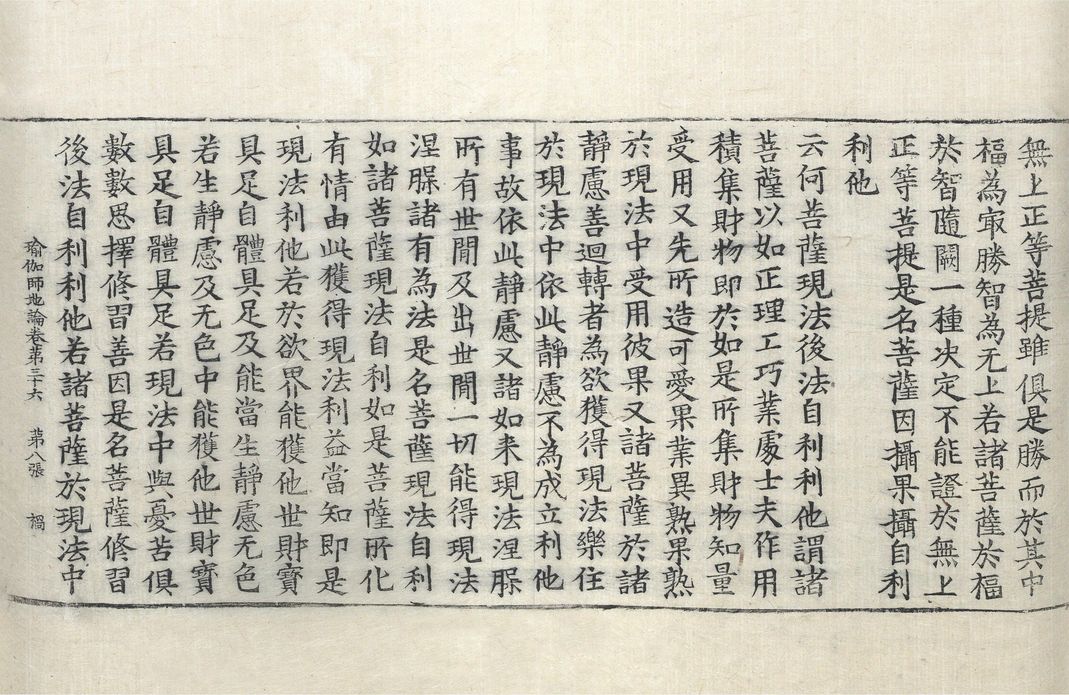 無上正等菩提雖俱是勝而於其中
福為㝡勝智為无上若諸菩薩於福
於智隨闕一種决定不能證於無上
正等菩提是名菩薩因攝果攝自利
利他
云何菩薩現法後法自利利他謂諸
菩薩以如正理工巧業處士夫作用
積集財物即於如是所集財物知量
受用又先所造可愛果業異熟果熟
於現法中受用彼果又諸菩薩於諸
靜慮善迴轉者為欲獲得現法樂住
於現法中依此靜慮不為成立利他
事故依此靜慮又諸如来現法涅槃
所有世閒及出世閒一切能得現法
涅槃諸有為法是名菩薩現法自利
如諸菩薩現法自利如是菩薩所化
有情由此獲得現法利益當知即是
現法利他若於欲界能獲他世財寶
具足自體具足及能當生靜慮无色
若生靜慮及无色中能獲他世財寶
具足自體具足若現法中與憂苦俱
數數思擇修習善因是名菩薩修習
後法自利利他若諸菩薩於現法中
瑜伽師地論卷苐三十六 苐八張 禍